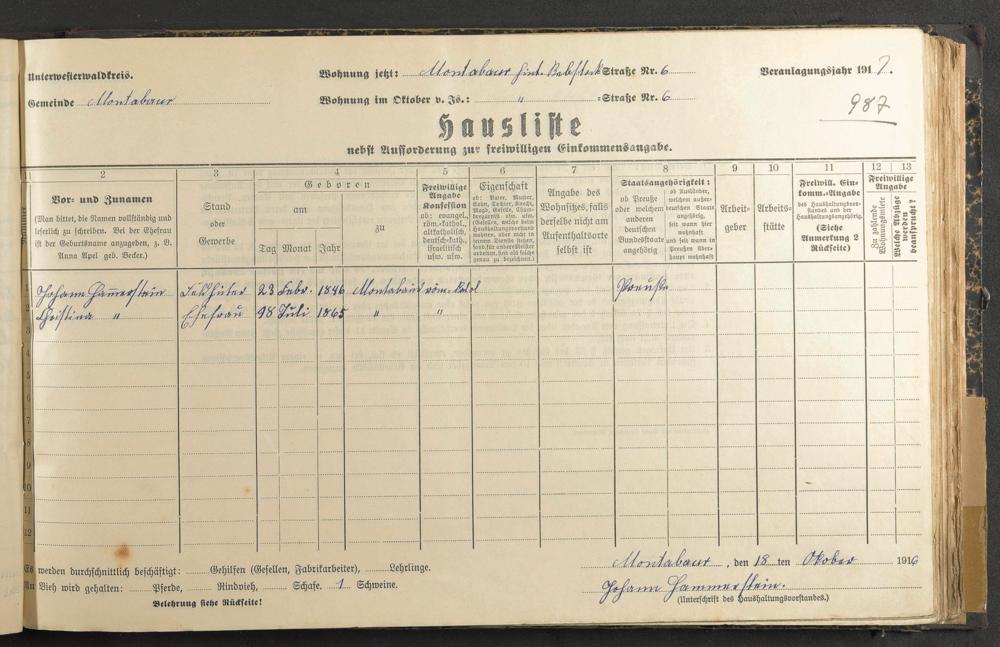 Unterwesterwaldkreis.
Wohnung jetzt: Montabaur Straße Nr. 6
Veranlagungsjahr 1917.
Gemeinde Montabaur
Wohnung im Oktober v. Js.: " =Straße Nr. 6
987
Hausliste
nebst Aufforderung zur freiwilligen Einkommensangabe.
1 2 3 4 5 6 7 8 9 10 11 12 13
Vor- und Zunamen
(Man bittet, die Namen vollständig und
leserlich zu schreiben. Bei der Ehefrau
ist der Geburtsname anzugeben, z. B.
Anna Apel geb. Becker.)
Stand
oder
Gewerbe
Geboren
am
zu
Tag Monat Jahr
Freiwillige
Angabe
Konfession
ob: evangel.,
röm.-kathol.,
altkatholisch
deutsch-kath.,
israelitisch
usw. usw.
Eigenschaft
ob: Vater, Mutter,
Angabe des
Wohnsitzes, falls
derselbe nicht am
Aufenthaltsorte
selbst ist
Staatsangehörigkeit:
ob Preuße
oder welchem
anderen
deutschen
Bundesstaate
angehörig
ob Ausländer,
welchem außer-
deutschen Staate
angehörig,
seit wann hier
wohnhaft
und seit wann in
Preußen über-
haupt wohnhaft
Arbeit-
geber
Arbeits-
stätte
Freiwill. Ein-
komm.-Angabe
des Haushaltungsvor-
standes und der
Haushaltungsangehörig.
(Siehe
Anmerkung 2
Rückseite)
Freiwillige
Angabe
Zu zahlende
Wohnungsmiete
Welche Abzüge
werden
beansprucht?
Johann Hammerstein 23 Febr. 1846 Montabaur röm.-kathol Preuße
2 Christina " Ehefrau 98 Juli 1865 " "
3
4
5
6
7
8
9
10
11
12
Es werden durchschnittlich beschäftigt: Gehilfen (Gesellen, Fabrikarbeiter), Lehrlinge.
Montabaur, den 18 ten Oktober 1916
An Vieh wird gehalten: Pferde, Rindvieh, Schafe. 1 Schweine.
Johann Hammerstein.
Belehrung siehe Rückseite!
(Unterschrift des Haushaltungsvorstandes.)